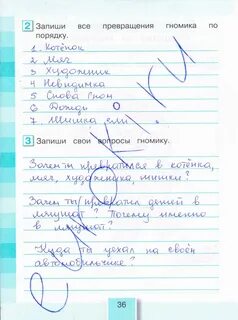 2 Запиши все превращения гномика по
порядку.
1. Котёнок
2. Мяч
3. Художник
4. Невидимка
5. Снова Гном
6. Дождь
7. Шишка ели
3 Запиши свои вопросы гномику.
Зачем ты превратился в котёнка,
мяч, художника, шишки?
Зачем ты превратил детей в
лягушат? Почему именно
в лягушат?
Куда ты уехал на своём
автомобильчике?
36